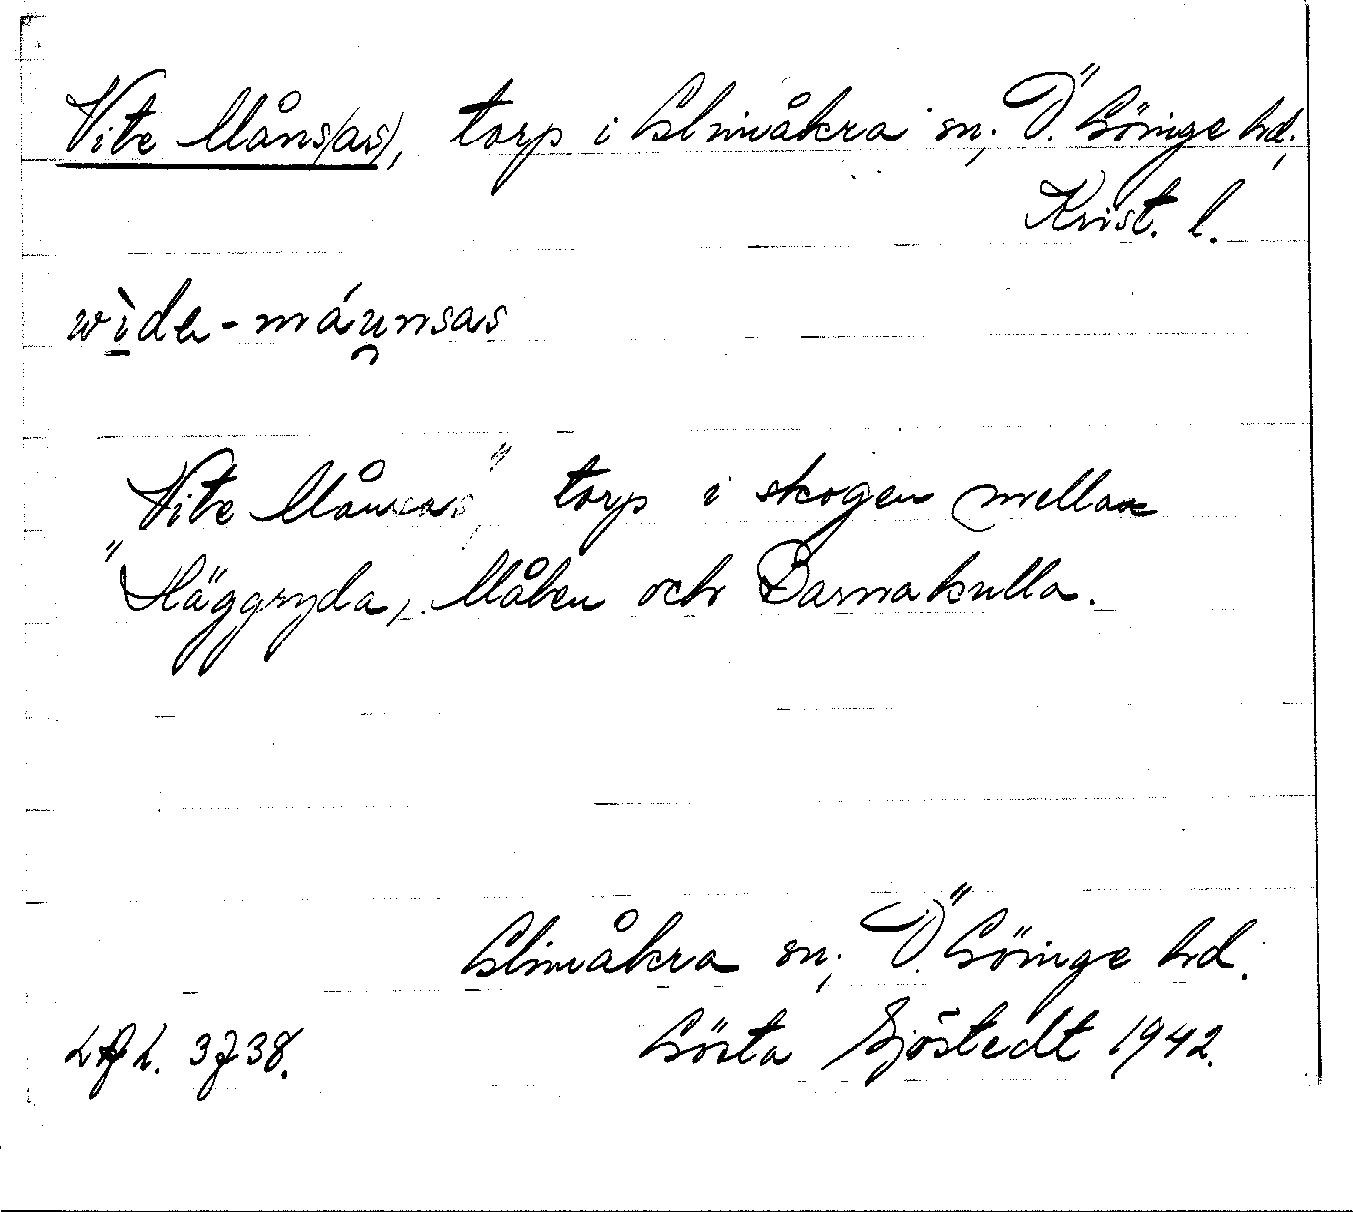 Vite Måns(as), torp i Glimåkra sn, Ö. Göinge hd,
Krist. l.
wìde-máu̯nsas
Vite Månsas," torp i skogen mellan
"Häggryda, Måben och Barnakulla.
Glimåkra sn, Ö. Göinge hd.
3738. Gösta Sjöstedt 1942.